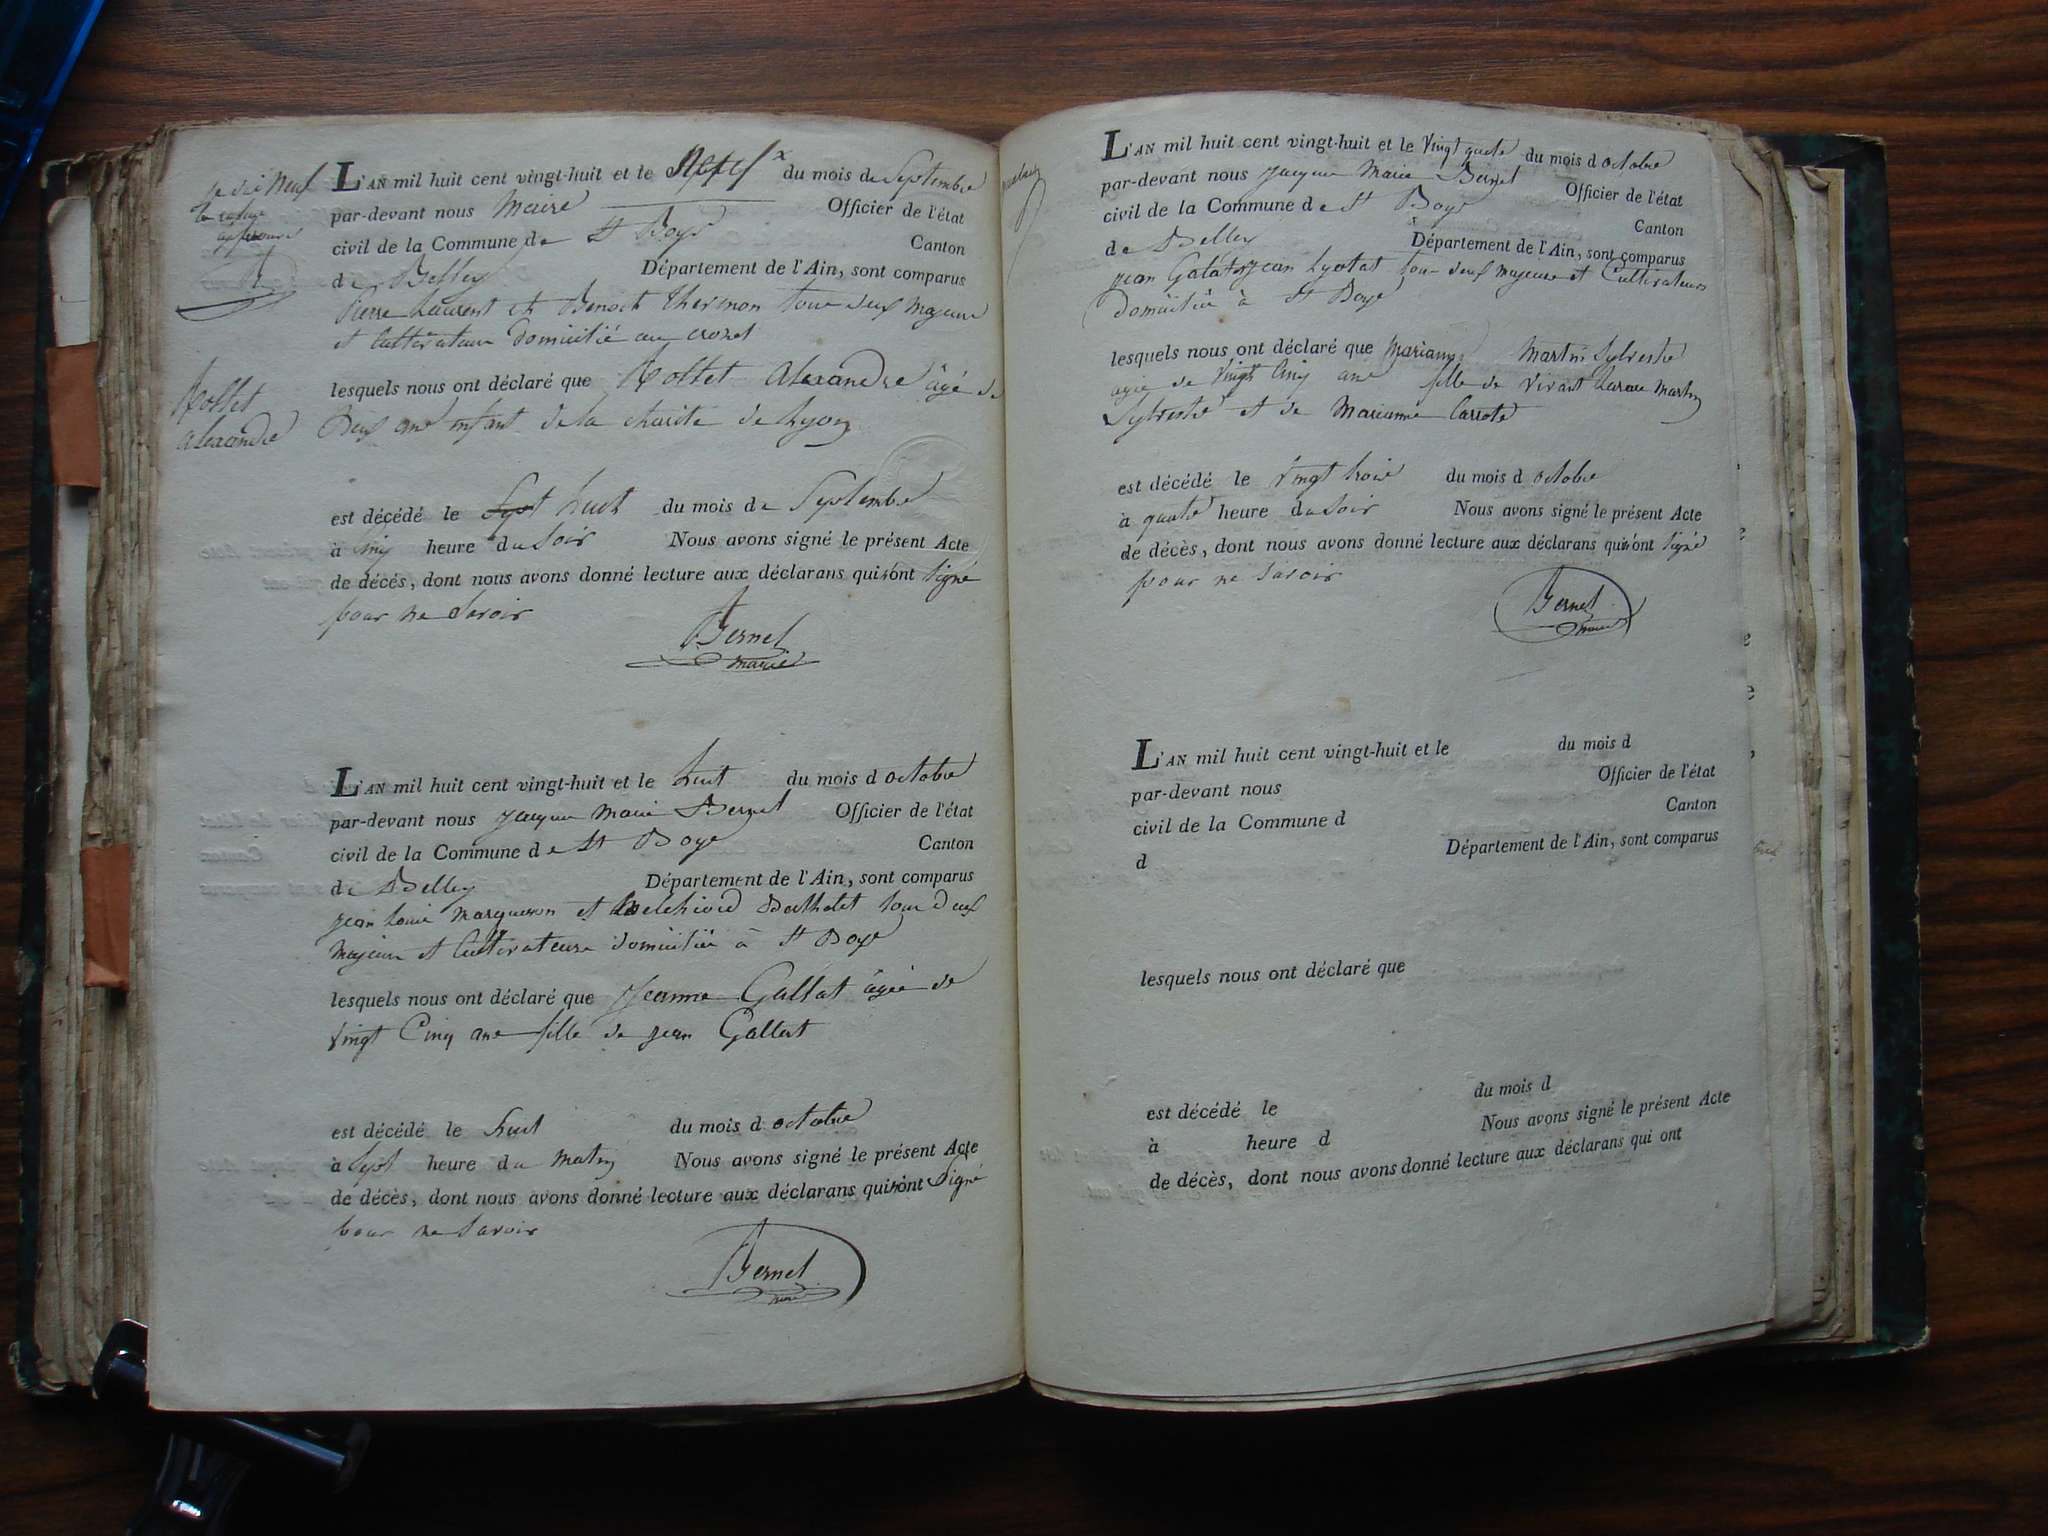 L'AN mil huit cent vingt-huit et le Neuf x du mois de Septembre
par-devant nous Maire Officier de l'état
civil de la Commune de St Boys Canton
de Belley Département de l'Ain, sont comparus
Pierre Laurent et Benoit Thermon tous deux majeurs
et Cultivateurs domicilié au crozet
lesquels nous ont déclaré que Rollet Alexandre âgé de
Deux ans enfant de la charité de Lyon
est décédé le Sept huit du mois de Septembre
à Cinq heure du Soir Nous avons signé le présent Acte
de décès, dont nous avons donné lecture aux déclarans qui n'ont Signé
pour ne Savoir
Bernet
maire
Neuf
la rature
approuvé
B
Rollet
alexandre
L'AN mil huit cent vingt-huit et le huit du mois d octobre
par-devant nous Jacque Marie Bernet Officier de l'état
civil de la Commune de St Boys Canton
de Belley Département de l'Ain, sont comparus
Jean Louis Margueron et Melchiord Berthelet tous deux
majeurs et Cultivateurs domiciliés à St Boys
lesquels nous ont déclaré que Jeanne Gallat âgée de
vingt Cinq ans fille de jean Gallat
est décédé le huit du mois d octobre
à Sept heure du Matin Nous avons signé le présent Acte
de décès, dont nous avons donné lecture aux déclarans qui n'ont Signé
pour ne Savoir
Bernet
maire
L'AN mil huit cent vingt-huit et le Vingt quatre du mois d octobre
par-devant nous Jacque Marie Bernet Officier de l'état
civil de la Commune de St Boys Canton
de Belley Département de l'Ain, sont comparus
jean Galat jean Lyotat tous deux majeurs et Cultivateurs
domiciliés à St Boys
lesquels nous ont déclaré que Marianne Martin Sylvestre
agée de Vingt Cinq ans fille de vivant Martin
Sylvestre et de Marianne Carrote
est décédé le Vingt trois du mois d octobre
à quatre heure du Soir Nous avons signé le présent Acte
de décès, dont nous avons donné lecture aux déclarans qui n'ont Signé
pour ne Savoir
Bernet
maire
L'AN mil huit cent vingt-huit et le du mois d
par-devant nous Officier de l'état
civil de la Commune d Canton
d Département de l'Ain, sont comparus
lesquels nous ont déclaré que
est décédé le du mois d
à heure d Nous avons signé le présent Acte
de décès, dont nous avons donné lecture aux déclarans qui ont